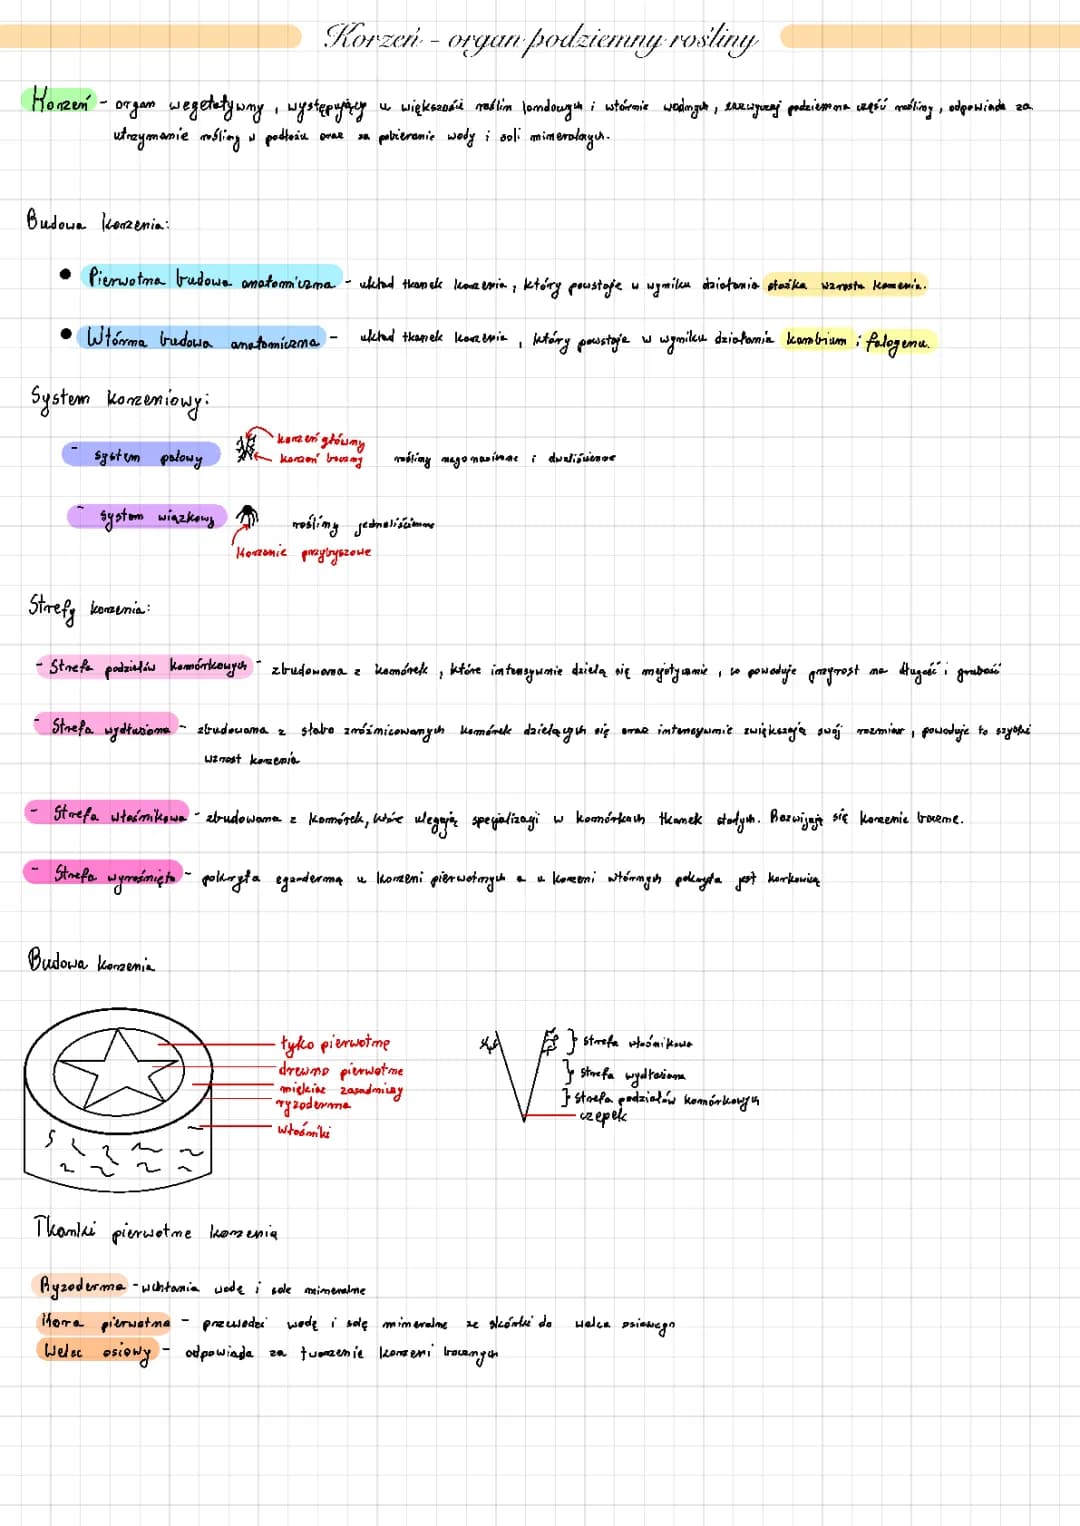 Korzeń - organ podziemny rośliny
Korzeń - organ wegetatywny, występujący u większości roślin lądowych i wtórnie wodnych, zazwyczaj podziemna część rośliny, odpowiada za
utrzymanie rośliny w podłożu oraz za pobieranie wody i soli mineralnych.
Budowa korzenia:
• Pierwotna budowa anatomiczna - układ tkanek korzenia, który powstaje w wyniku działania stożka wzrostu korzenia.
• Wtórna budowa anatomiczna - układ tkanek korzenia, który powstaje w wyniku działania kambium i felogenu.
System korzeniowy:
- system palowy korzeń główny
korzeń boczny rośliny nagonasienne i dwuliścienne
- system wiązkowy rośliny jednoliścienne
Korzenie przybyszowe
Strefy korzenia:
- Strefa podziałów komórkowych - zbudowana z komórek, które intensywnie dzielą się mejotycznie, co powoduje przyrost na długość i grubość
- Strefa wydłużania - zbudowana z słabo zróżnicowanych komórek dzielących się oraz intensywnie zwiększają swój rozmiar, powoduje to szybki
wzrost korzenia
- Strefa włośnikowa - zbudowana z komórek, które ulegają specjalizacji w komórkach tkanek stałych. Rozwijają się korzenie boczne.
- Strefa wyrośnięta - pokryta egzodermą u korzeni pierwotnych a u korzeni wtórnych pokryta jest korkowicą
Budowa korzenia
łyko pierwotne
drewno pierwotne
miękisz zasadniczy
ryzoderma
włośniki
} strefa włośnikowa
} strefa wydłużania
} strefa podziałów komórkowych
czepek
Tkanki pierwotne korzenia
Ryzoderma - wchłania wodę i sole mineralne
Kora pierwotna - przewodzi wodę i solę mineralne ze skórki do walca osiowego
Walec osiowy - odpowiada za tworzenie korzeni bocznych